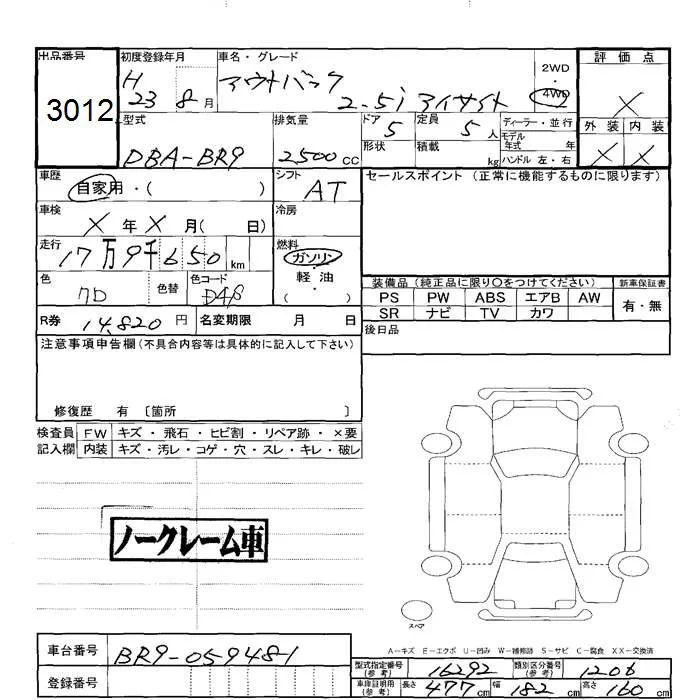 出品番号 初度登録年月 車名・グレード 2WD 評価点
3012 H 23 8月 アウトバック 2.5i アイサイト 4WD ×
型式 排気量 ドア 5 定員 5人 ディーラー・並行 外装 内装
DBA-BR9 2500cc 形状 積載 kg モデル年式 年 × ×
ハンドル 左・右
車歴 シフト セールスポイント (正常に機能するものに限ります)
自家用・( ) AT
車検 冷房
×年×月( 日)
走行 燃料
17万9千650km ガソリン・
色 色替 色コード 軽油
クロ D48 ( )
装備品 (純正品に限り○をつけてください) 新車保証書
PS PW ABS エアB AW 有・無
SR ナビ TV カワ
R券 14,820円 名変期限 月 日 後日品
注意事項申告欄(不具合内容等は具体的に記入して下さい)
修復歴 有 〔箇所 〕
検査員 FW キズ・飛石・ヒビ割・リペア跡・×要
記入欄 内装 キズ・汚レ・コゲ・穴・スレ・キレ・破レ
ノークレーム車
スペア
A-キズ E-エクボ U-凹み W-補修跡 S-サビ C-腐食 XX-交換済
車台番号 BR9-059481
登録番号
型式指定番号(参考) 16292 類別区分番号(参考) 1206
車庫証明用(参考) 長さ 477cm 幅 182cm 高さ 160cm